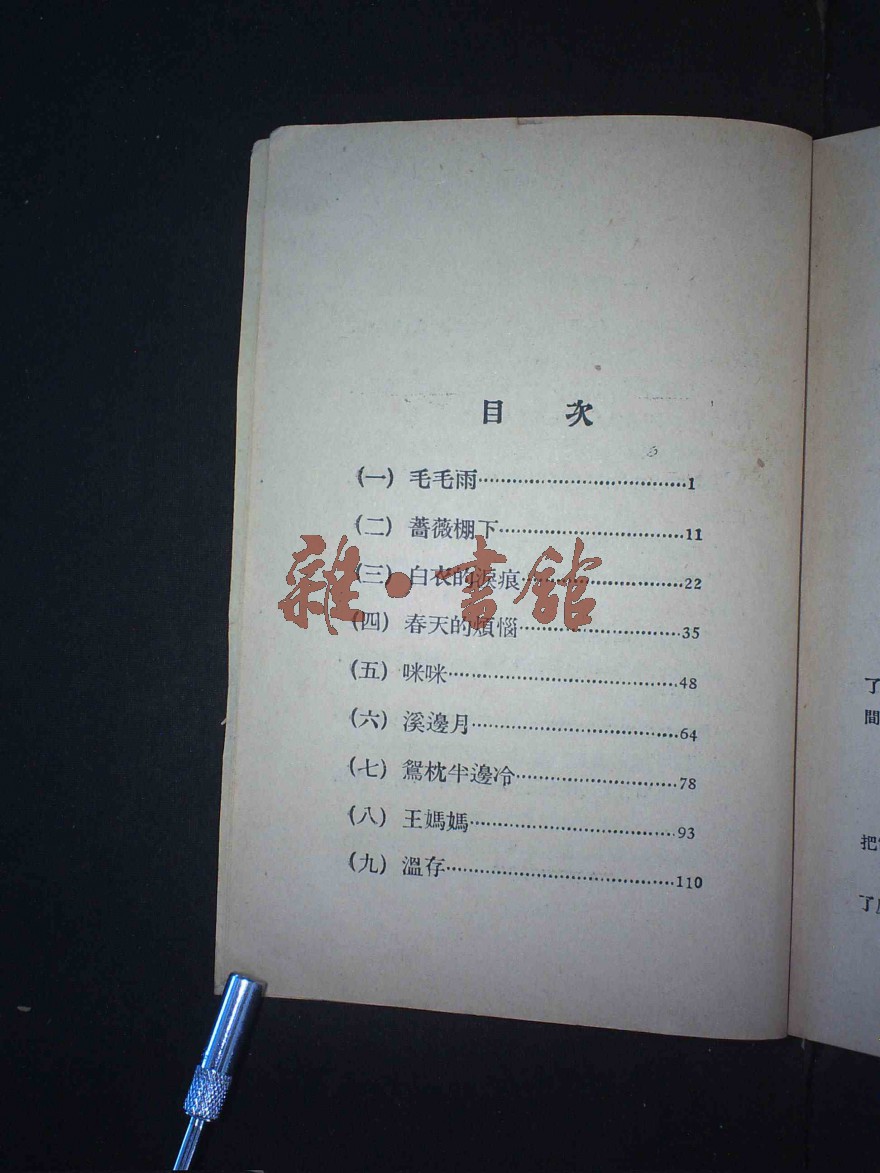 目 次
(一) 毛毛雨…………………………………1
(二) 薔薇棚下……………………………11
(三) 白衣的淚痕…………………………22
(四) 春天的煩惱…………………………35
(五) 咪咪……………………………………48
(六) 溪邊月…………………………………64
(七) 鴛枕半邊冷…………………………78
(八) 王媽媽…………………………………93
(九) 溫存……………………………………110
雜·書館
了
間
把
了